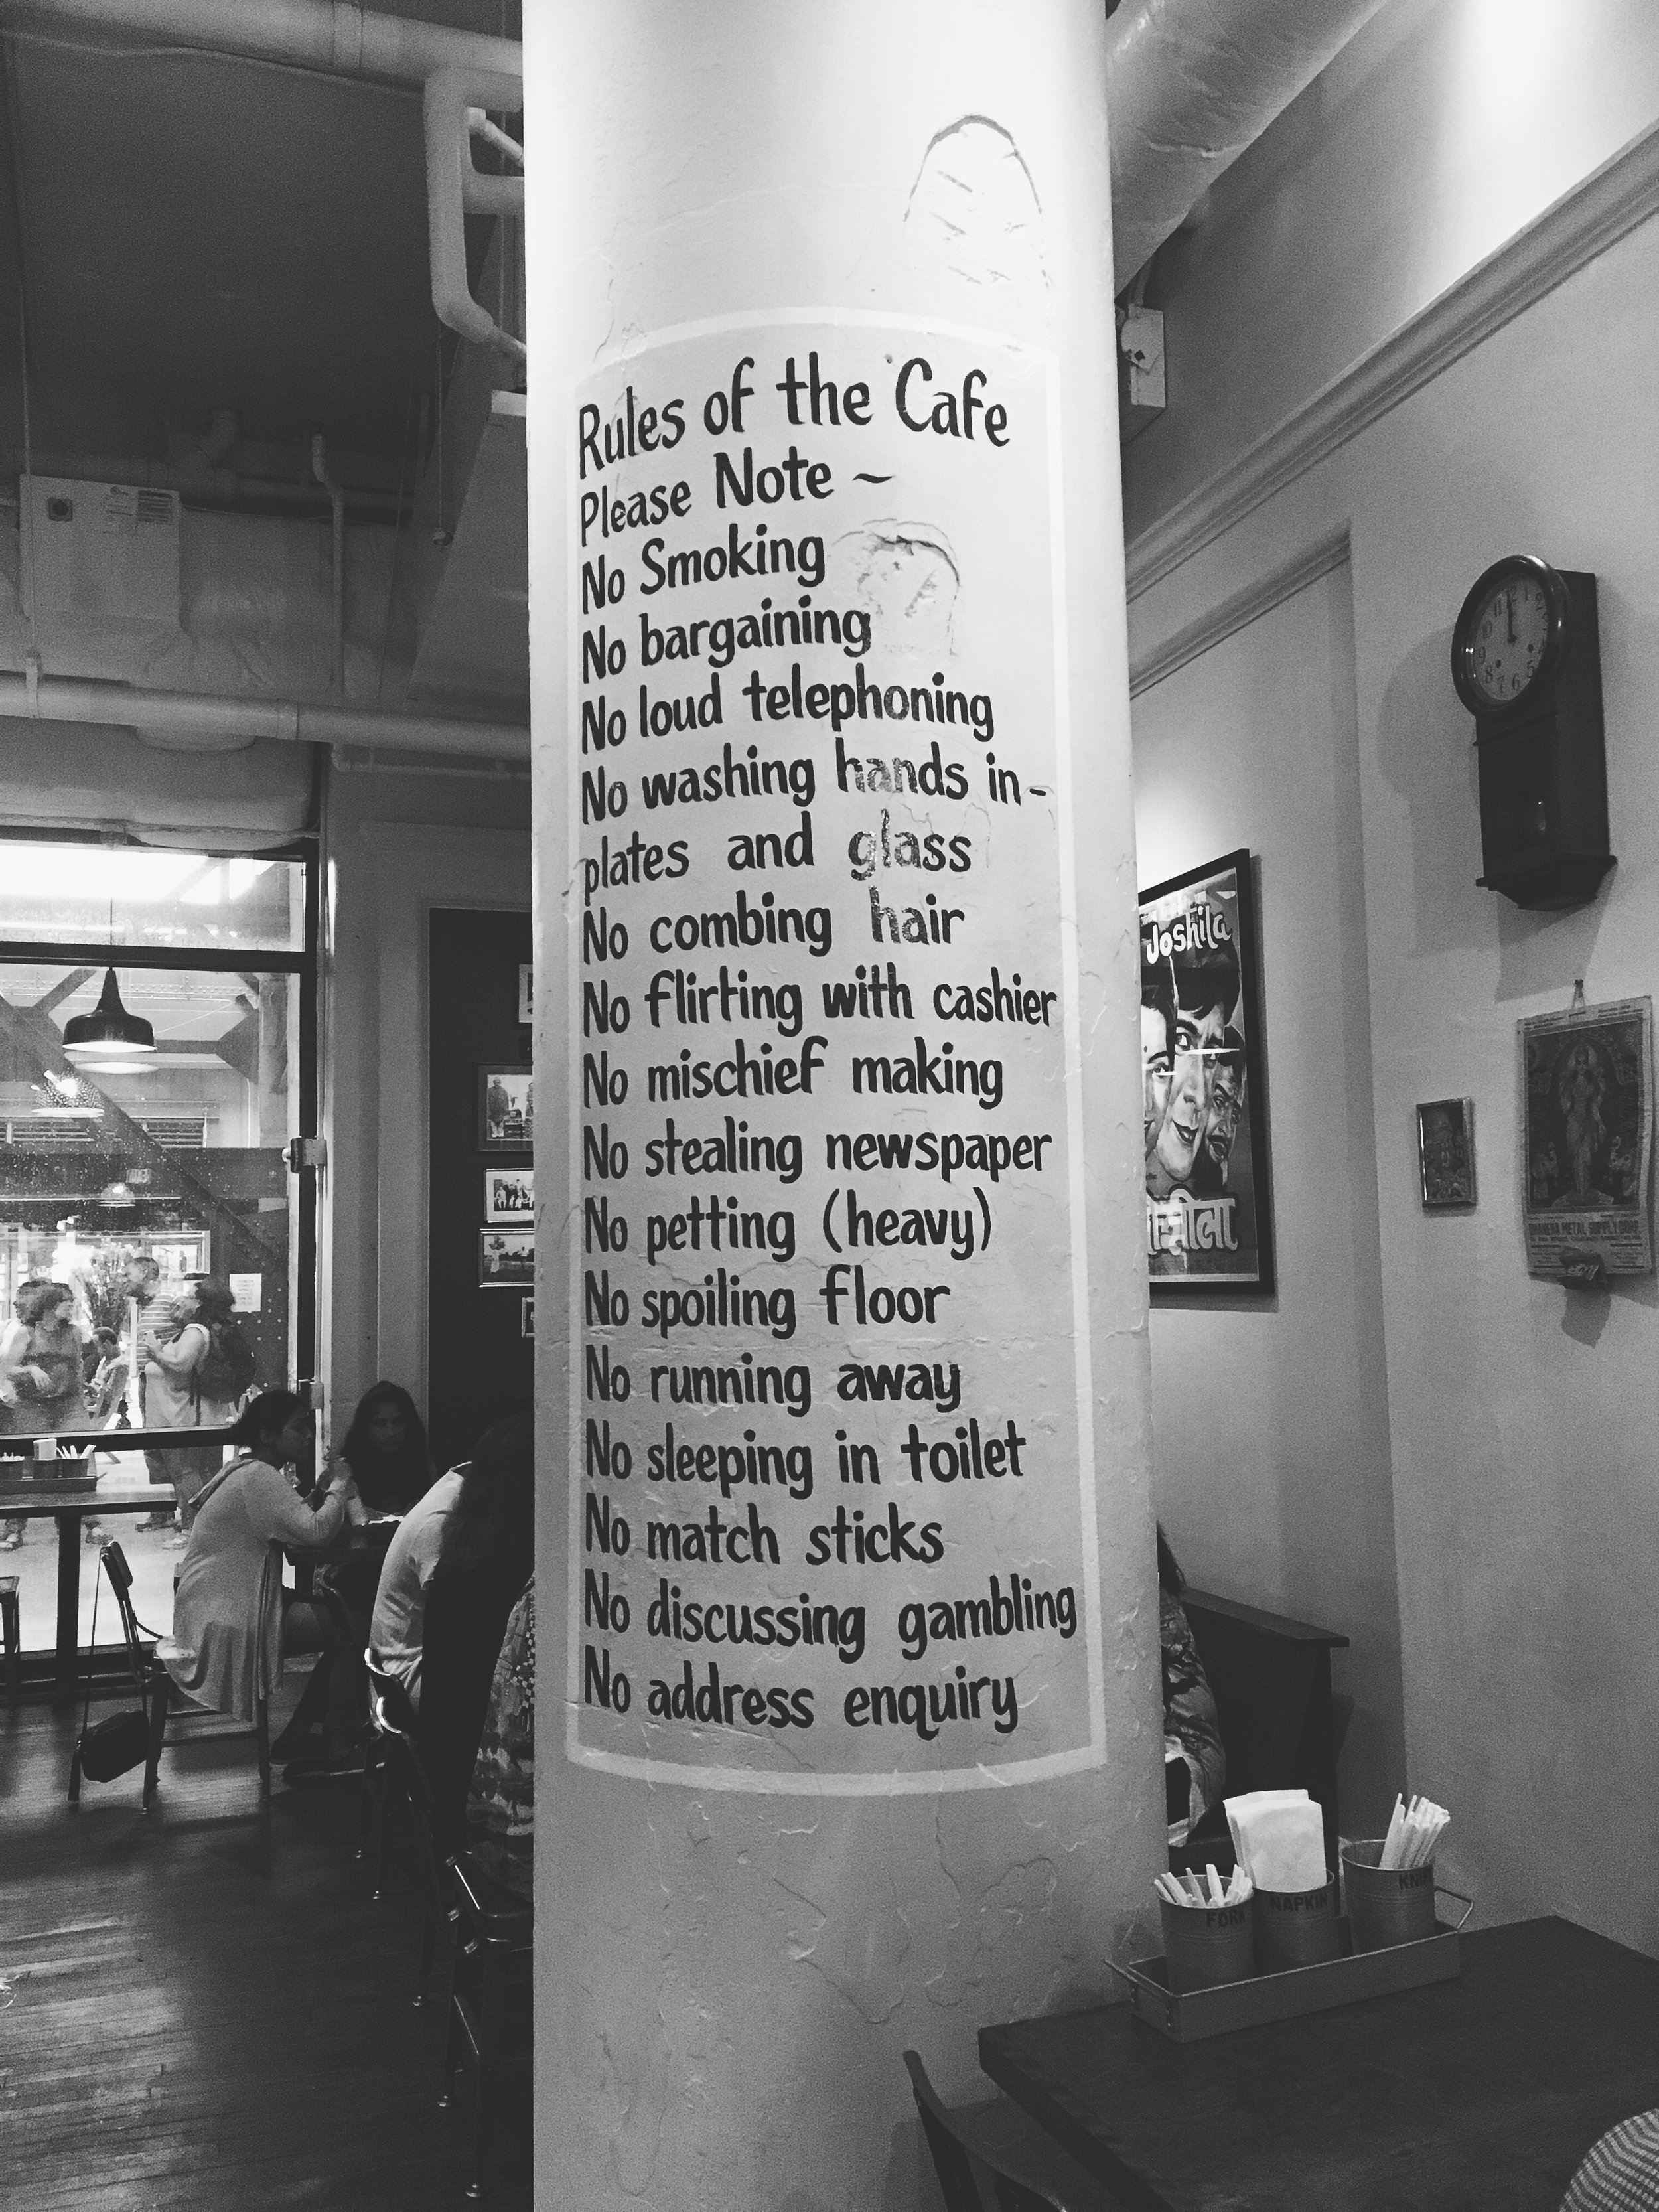 Rules of the Cafe
Please Note ~
No Smoking
No bargaining
No loud telephoning
No washing hands in-
plates and glass
No combing hair
No flirting with cashier
No mischief making
No stealing newspaper
No petting (heavy)
No spoiling floor
No running away
No sleeping in toilet
No match sticks
No discussing gambling
No address enquiry
Joshila
12 1 2 3 4 5 6 7 8 9 10 11
METAL SUPPLY
FORK
NAPKIN